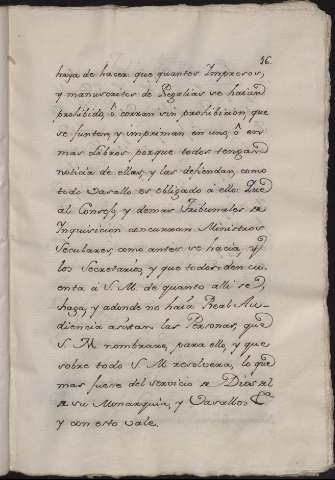 16.
haya de hacer que quantos Impresos,
y manuscritos de Regalias se hacian
prohibido, ô corran sin prohibicion, que
se junten, y impriman en uno, ô en
mas libros porque todos tengan
noticia de ellas, y las defiendan, como
todo Vasallo es obligado â ello Que
âl Consejo, y demas Tribunales de
Inquisicion concurran Ministros
Seculares, como antes se hacia, y
los Secretarios, y que todos den cu-
enta â S. M. de quanto alli se
haga, y adonde no haia Real Au-
diencia asistan las Personas, que
S. M. nombrare, para ello, y que
sobre todo S. M. resolvera, lo que
mas fuere del servicio de Dios el
de su Monarquia, y Vasallos &a
y con esto vale.